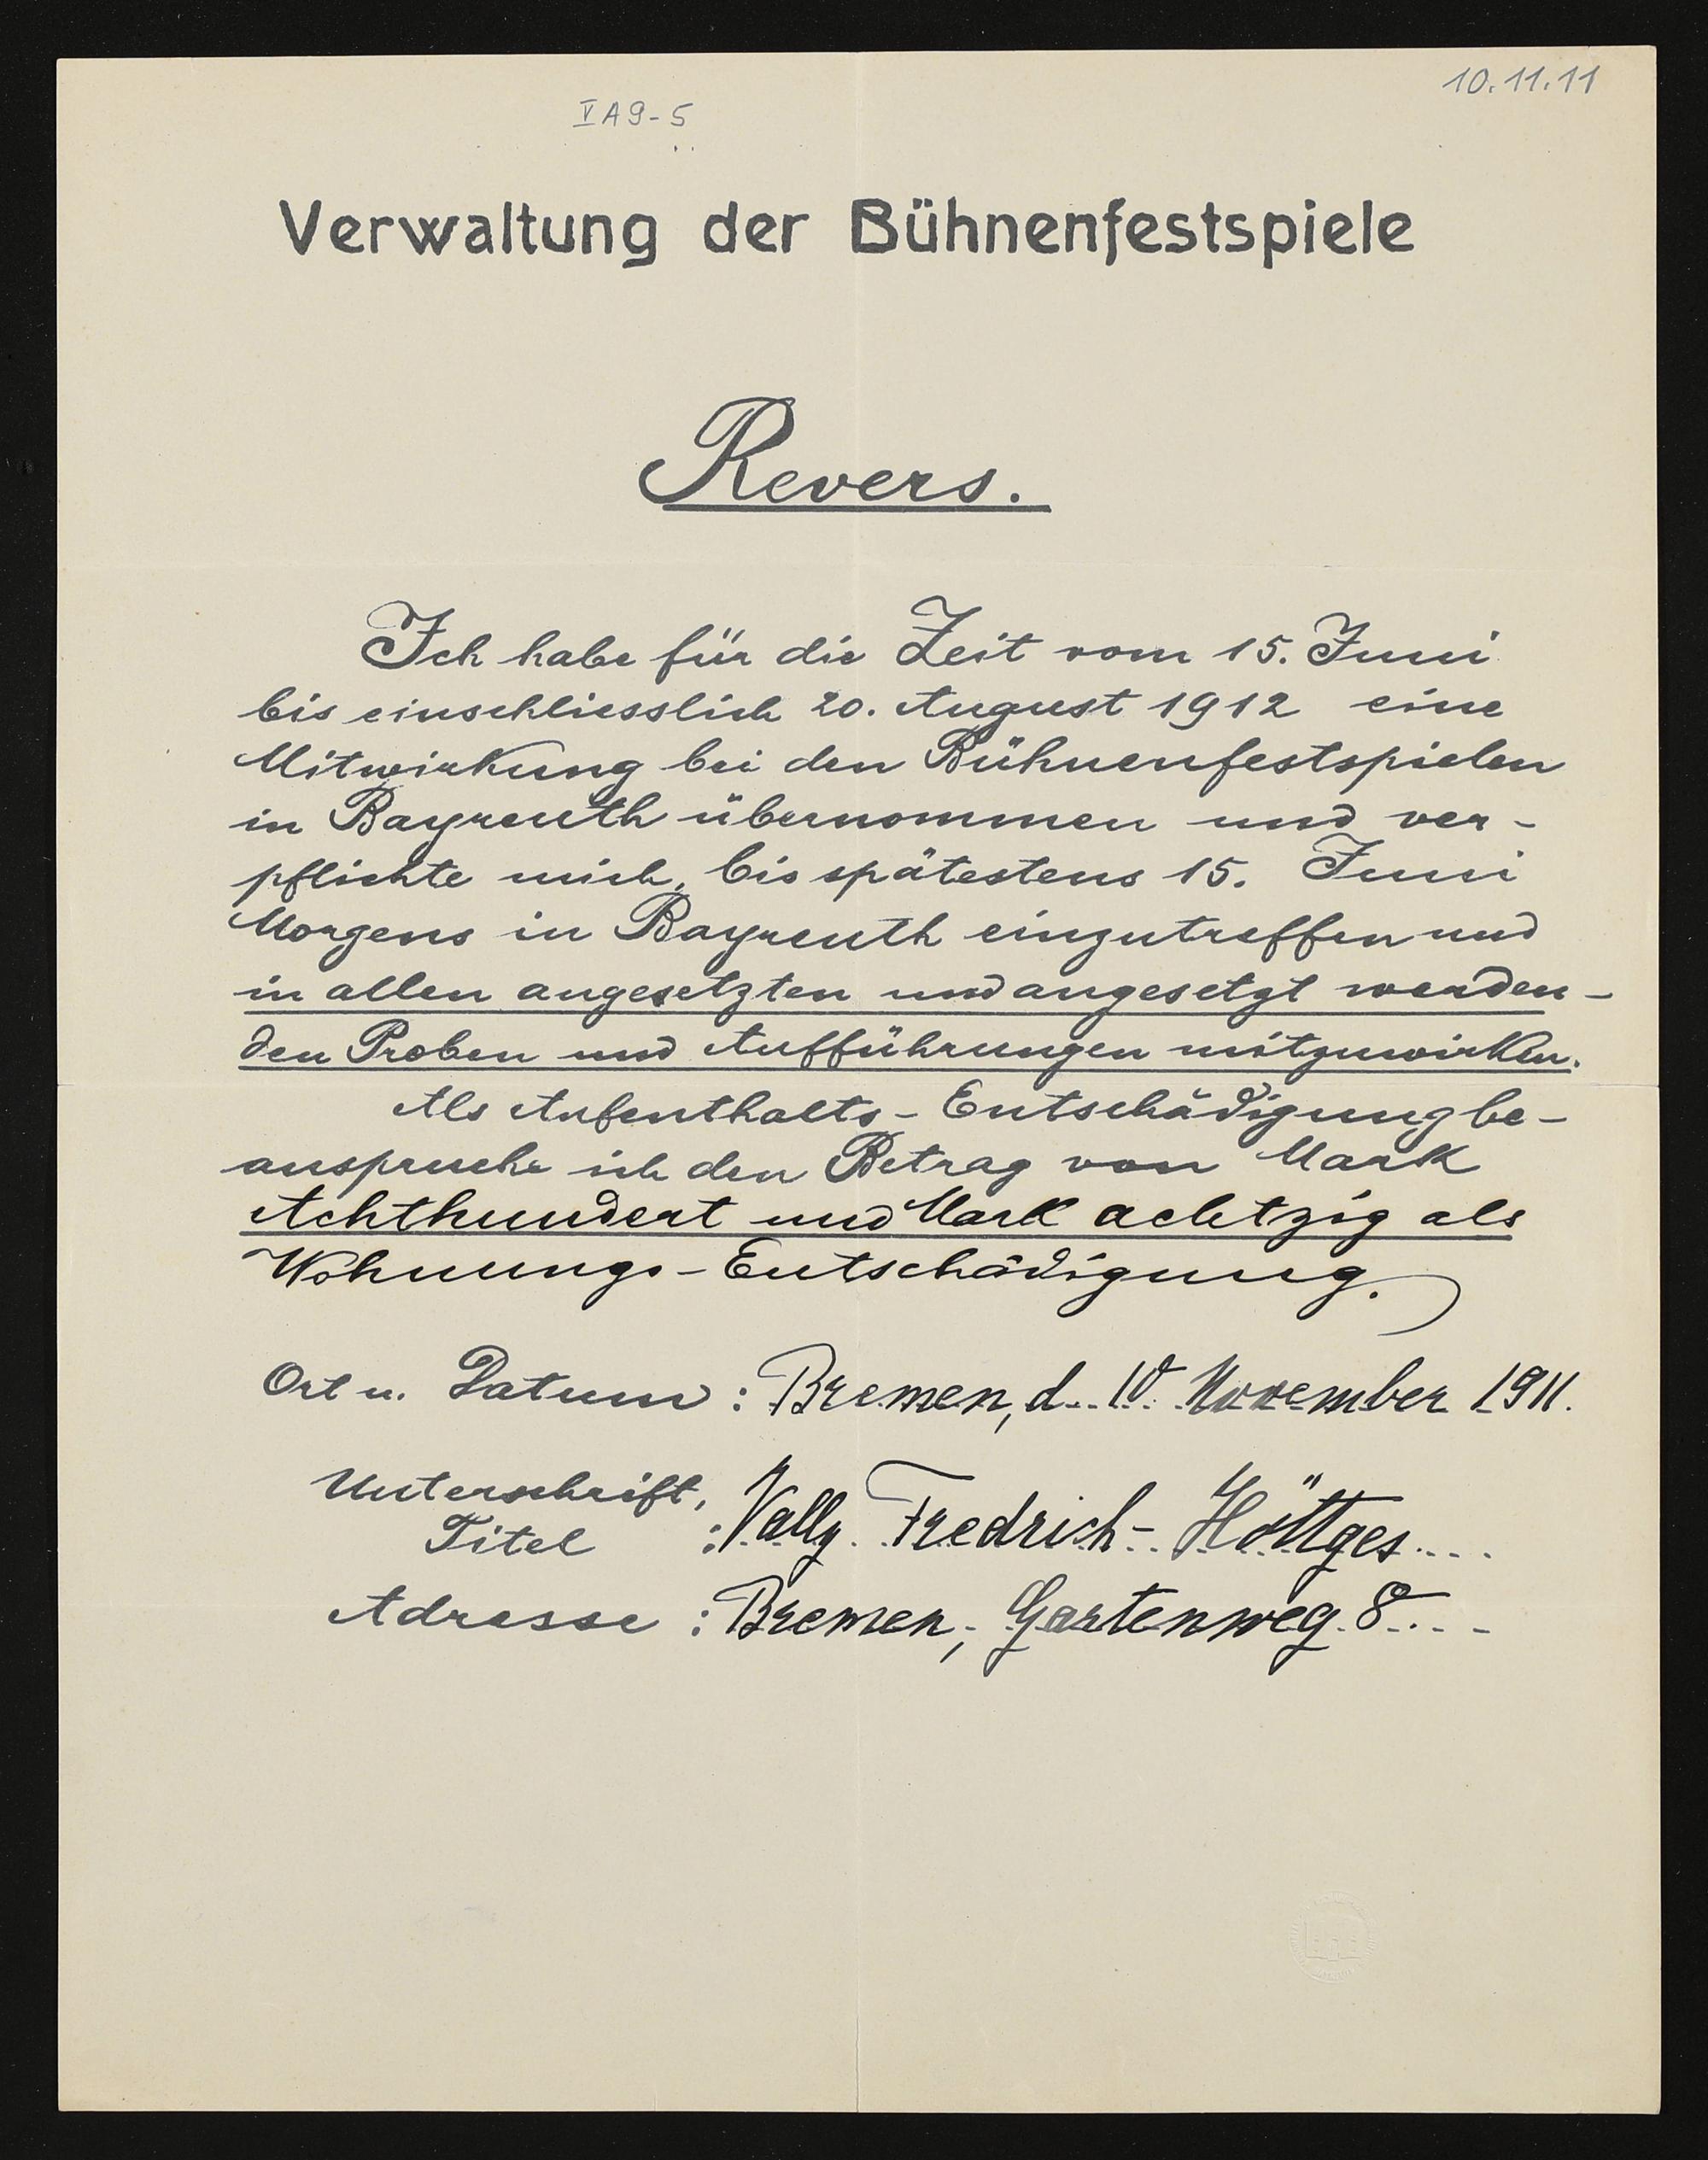 10.11.11
V A 9-5
Verwaltung der Bühnenfestspiele
Revers.
Ich habe für die Zeit vom 15. Juni
bis einschliesslich 20. August 1912 eine
Mitwirkung bei den Bühnenfestspielen
in Bayreuth übernommen und ver-
pflichte mich, bis spätestens 15. Juni
Morgens in Bayreuth einzutreffen und
in allen angesetzten und angesetzt werden-
den Proben und Aufführungen mitzuwirken.
Als Aufenthalts-Entschädigung be-
anspruche ich den Betrag von Mark
Achthundert und Mark achtzig als
Wohnungs-Entschädigung.
Ort u. Datum: Bremen, d. 10. November 1911.
Unterschrift,
Titel : Vally Fredrich-Höttges
Adresse : Bremen, Gartenweg 8